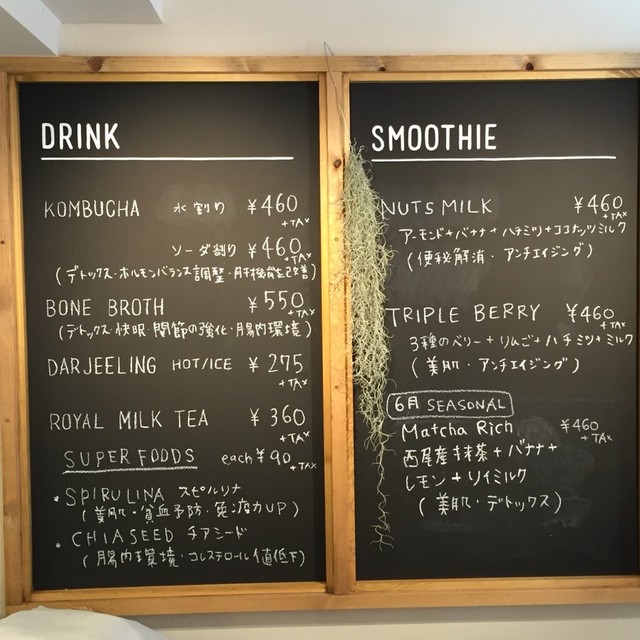 DRINK
KOMBUCHA 水割り ¥460
+TAX
ソーダ割り ¥460
+TAX
(デトックス・ホルモンバランス調整・肝機能を改善)
BONE BROTH ¥550
+TAX
(デトックス・快眠・関節の強化・腸内環境)
DARJEELING HOT/ICE ¥275
+TAX
ROYAL MILK TEA ¥360
+TAX
SUPER FOODS each¥90
+TAX
・SPIRULINA スピルリナ
(美肌・貧血予防・免疫力UP)
・CHIASEED チアシード
(腸内環境・コレステロール値低下)
SMOOTHIE
NUTS MILK ¥460
+TAX
アーモンド+バナナ+ハチミツ+ココナッツミルク
(便秘解消・アンチエイジング)
TRIPLE BERRY ¥460
+TAX
3種のベリー+りんご+ハチミツ+ミルク
(美肌・アンチエイジング)
6月 SEASONAL
Matcha Rich ¥460
+TAX
西尾産抹茶+バナナ+
レモン+ソイミルク
(美肌・デトックス)